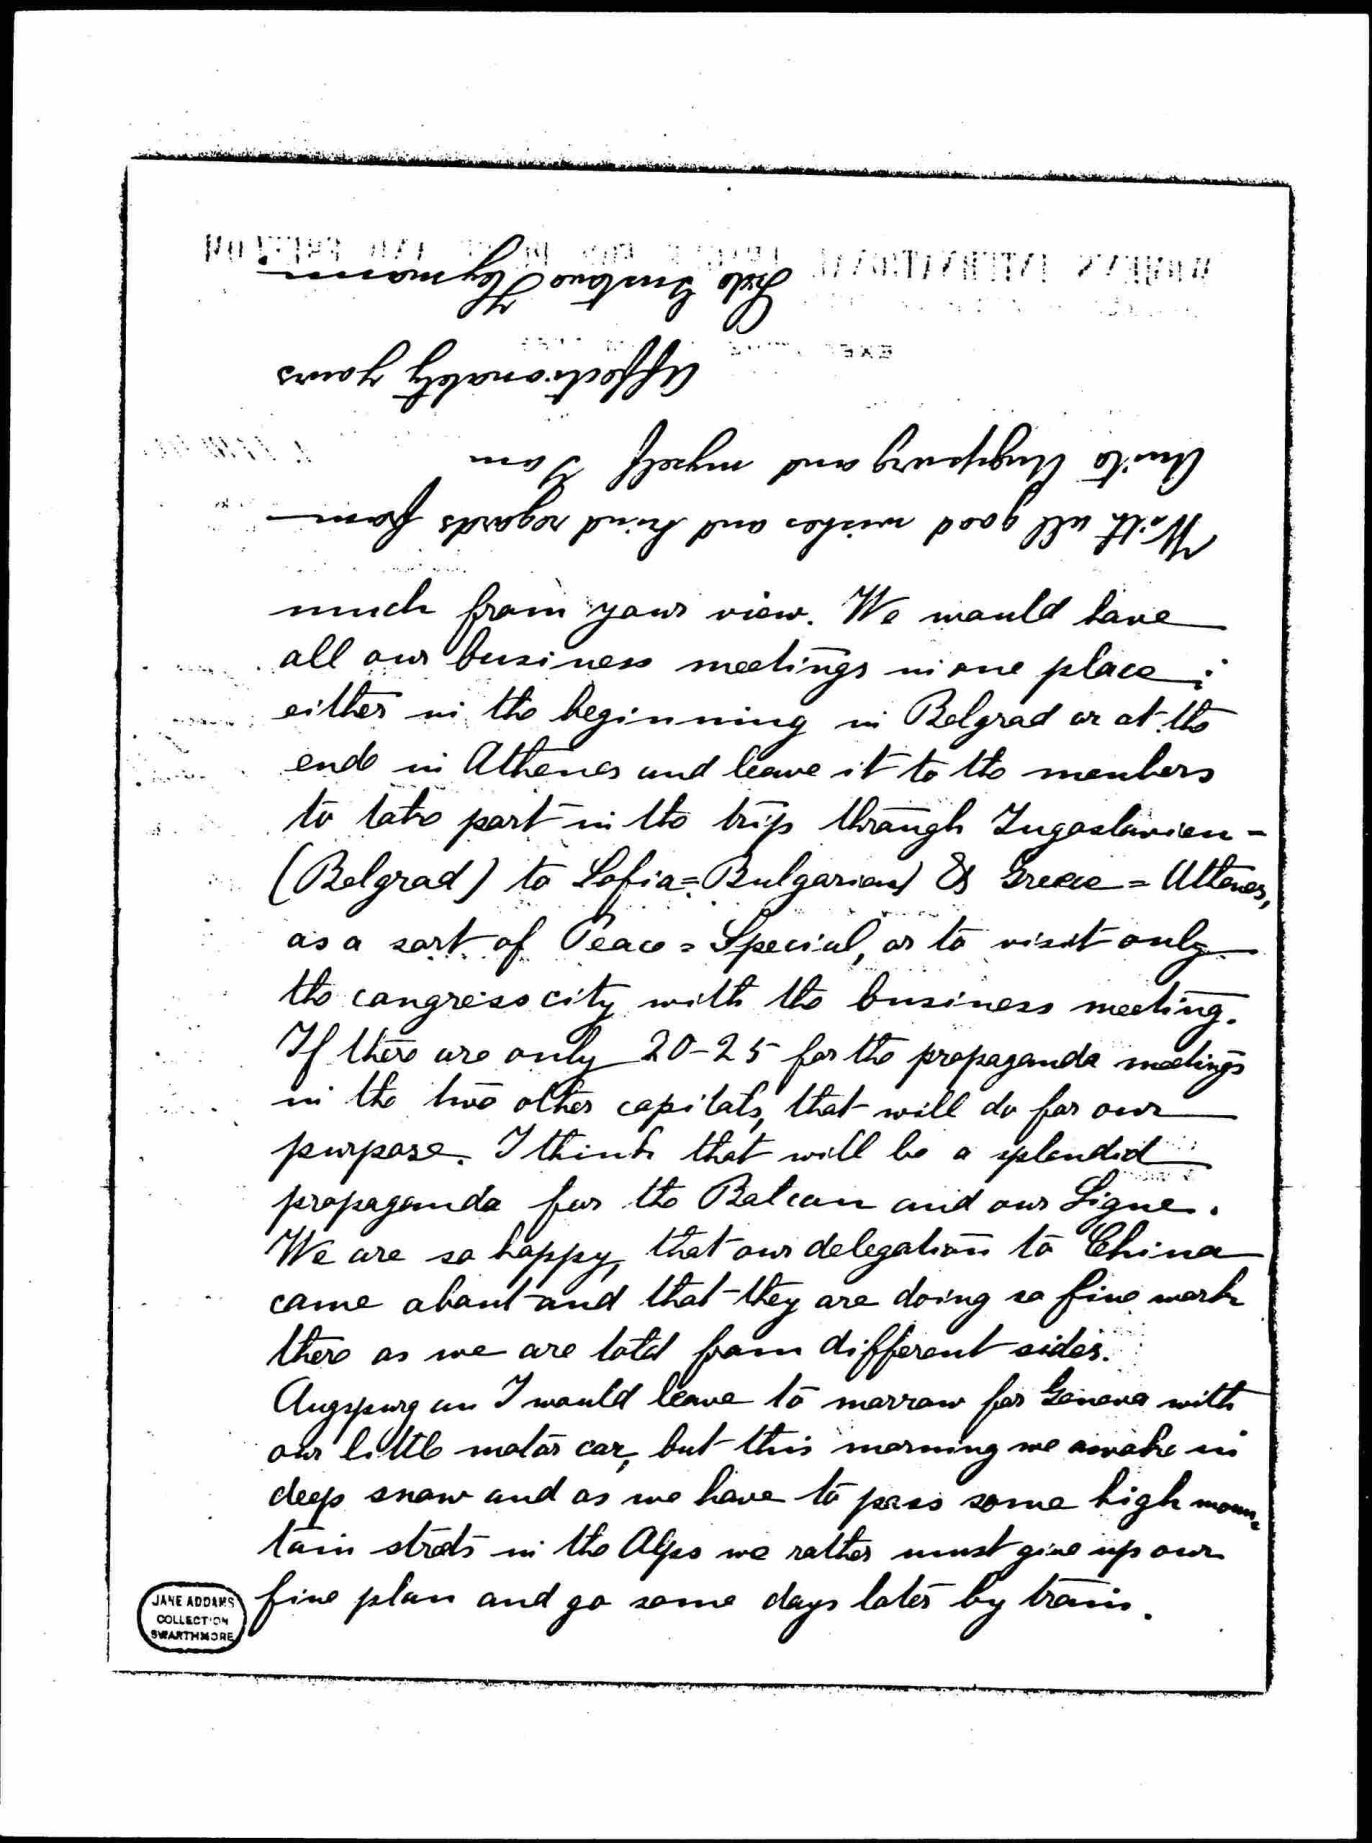 much from your view. We would have
all our business meetings in one place:
either in the beginning in Belgrad or at the
ende in Athenes and leave it to the members
to take part in the trip through Jugoslavien -
(Belgrad) to Sofia = Bulgarien) & Greece = Athenes,
as a sort of Peace = Special, or to visit only
the congress city with the business meeting.
If there are only 20-25 for the propaganda meetings
in the two other capitals, that will do for our
purpose. I think that will be a splendid
propaganda for the Balcan and our Ligue.
We are so happy, that our delegation to China
came about and that they are doing so fine work
there as we are told from different sides.
Augspurg an I would leave to morrow for Geneva with
our little motor car, but this morning we awake in
deep snow and as we have to pass some high moun=
tain strets in the Alps we rather must give up our
fine plan and go some days later by train.
With all good wishes and kind regards from
Anita Augspurg and myself I am
Affectionately yours
Lida Gustava Heymann
WOMEN'S INTERNATIONAL LEAGUE FOR PEACE AND FREEDOM
JANE ADDAMS
COLLECTION
SWARTHMORE